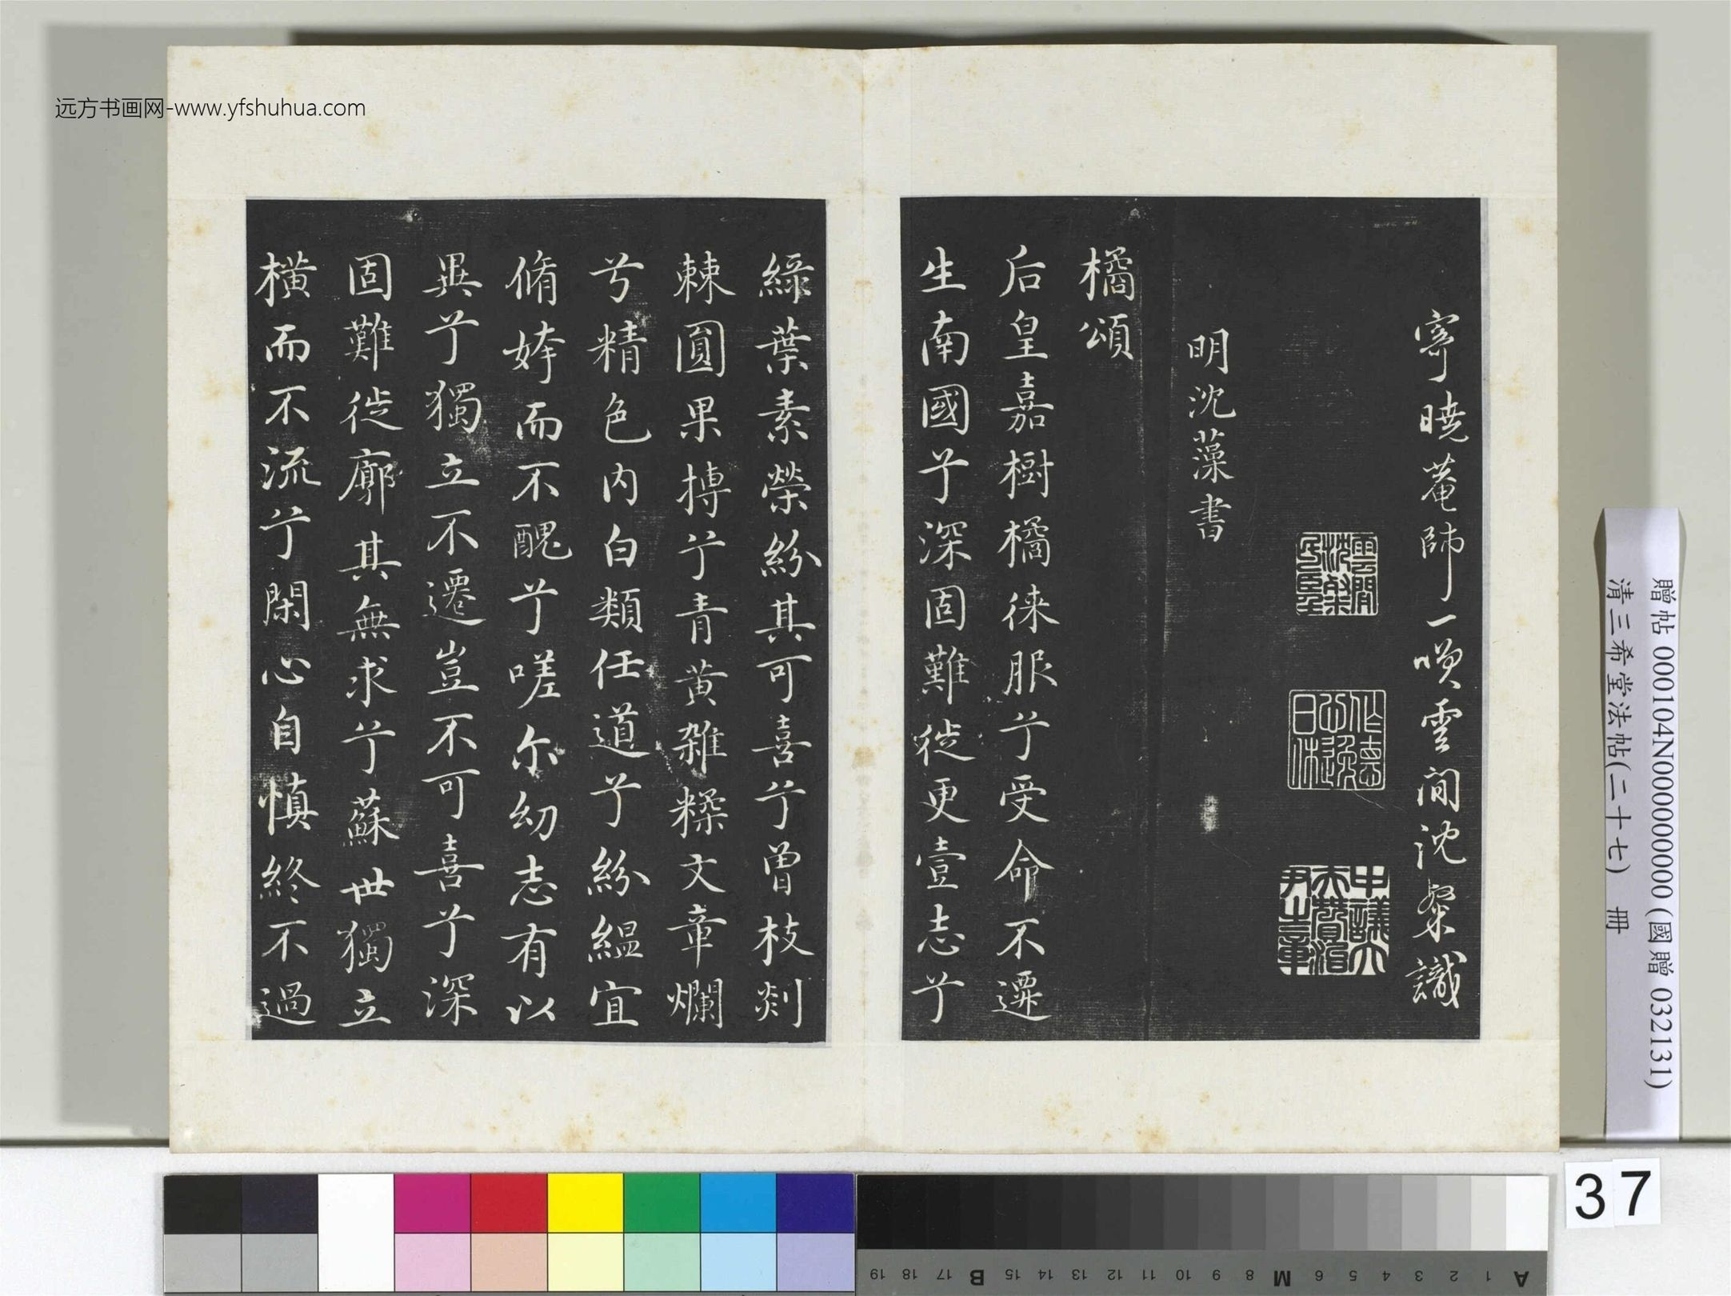 远方书画网-www.yfshuhua.com
寄曉菴師一噗雲间沈粲識
明沈藻書
橘頌
后皇嘉樹橘徠服兮受命不遷
生南國兮深固難徙更壹志兮
綠葉素榮紛其可喜兮曾枝剡
棘圓果摶兮青黃雜糅文章爛
兮精色内白類任道兮紛縕宜
脩姱而不醜兮嗟尔幼志有以
異兮獨立不遷豈不可喜兮深
固難徙廓其無求兮蘇世獨立
橫而不流兮閑心自慎終不過
贈帖 000104N000000000 (國贈 032131)
清三希堂法帖(二十七) 冊
37
A 1 2 3 4 5 6 M 8 9 10 11 12 13 14 15 B 17 18 19